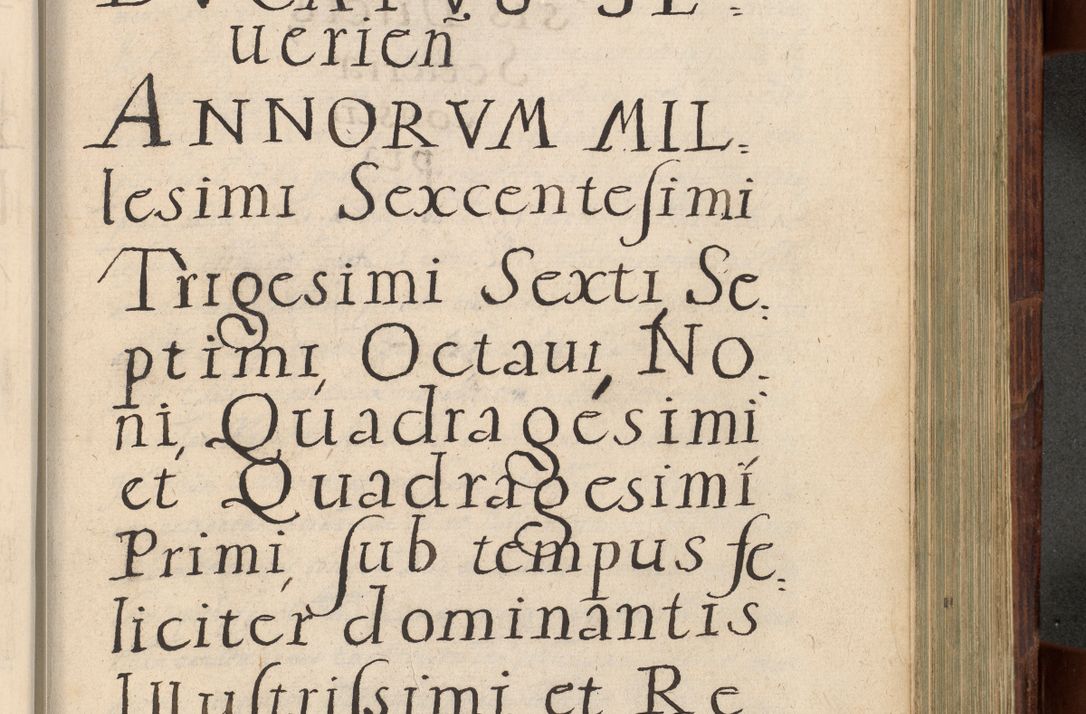 DVCATVS SE-
uerień
ANNORVM MIL-
lesimi Sexcenteſimi
Trigesimi Sexti, Se-
ptimi, Octaui, No-
ni, Quadragesimi
et Quadragesimi
Primi, ſub tempus fe-
liciter dominantis
Illuſtriſsimi et Re